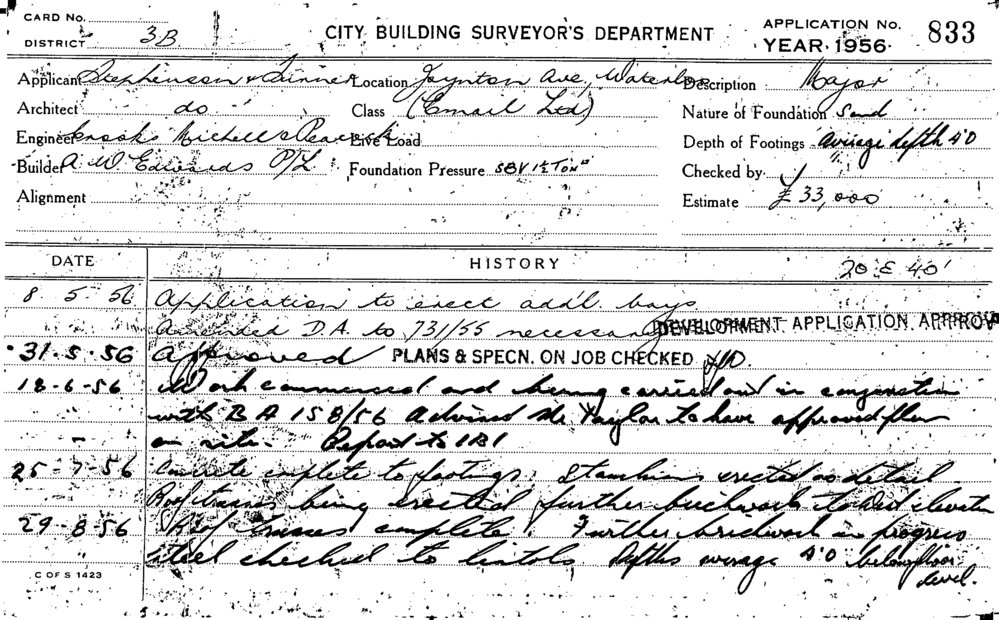 CARD No.
DISTRICT 3B
CITY BUILDING SURVEYOR'S DEPARTMENT
APPLICATION No. 833
YEAR 1956
Applicant Stephenson & Turner Location Joynton Ave, Waterloo Description Major
Architect do Class (Email Ltd) Nature of Foundation Sand
Engineer Crooks Michell & Peacock Live Load Depth of Footings average depth 4'0"
Builder A. W. Edwards P/L Foundation Pressure SBV 1½ Ton Checked by
Alignment Estimate £33,000
DATE HISTORY 20 E 40'
8 5 56 Application to erect add'l bays
Amended D.A. to 731/55 necessary DEVELOPMENT APPLICATION APPROV
31-5-56 Approved PLANS & SPECN. ON JOB CHECKED
18-6-56 Work commenced and being carried out in conjunction
with B A 158/56 Advised Mr Taylor to have approved plan
on site. Report to 1B1
25-7-56 Concrete complete to footings. Stanchions erected as detail
Roof trusses being erected further brickwork to West elevation
29-8-56 Roof trusses complete. Further brickwork in progress
steel checked to lintols depths average 4'0 below floor
level.
C OF S 1423